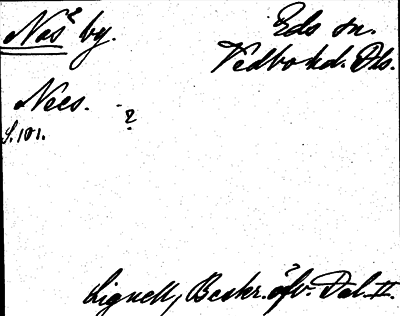 Näs² by.
Eds sn.
Vedbo hd. Dls.
Nees.
?
S. 101.
Lignell, Beskr. öfv. Dal. II.